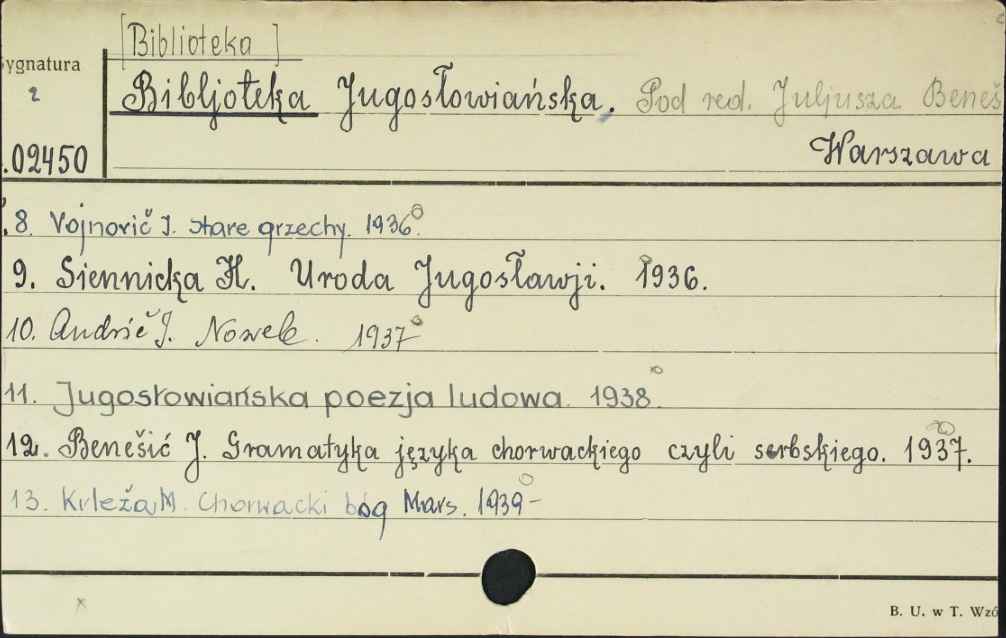 [Biblioteka]
Sygnatura
2
Bibljoteka Jugosłowiańska. Pod red. Juljusza Beneš
.02450
Warszawa
8. Vojnovič I. stare grzechy. 1936.
9. Siennicka H. Uroda Jugosławji. 1936.
10. Andrić I. Nowele. 1937
11. Jugosłowiańska poezja ludowa. 1938.
12. Benešić J. Gramatyka języka chorwackiego czyli serbskiego. 1937.
13. Krleža M. Chorwacki bóg Mars. 1939-
x
B. U. w T. Wzó